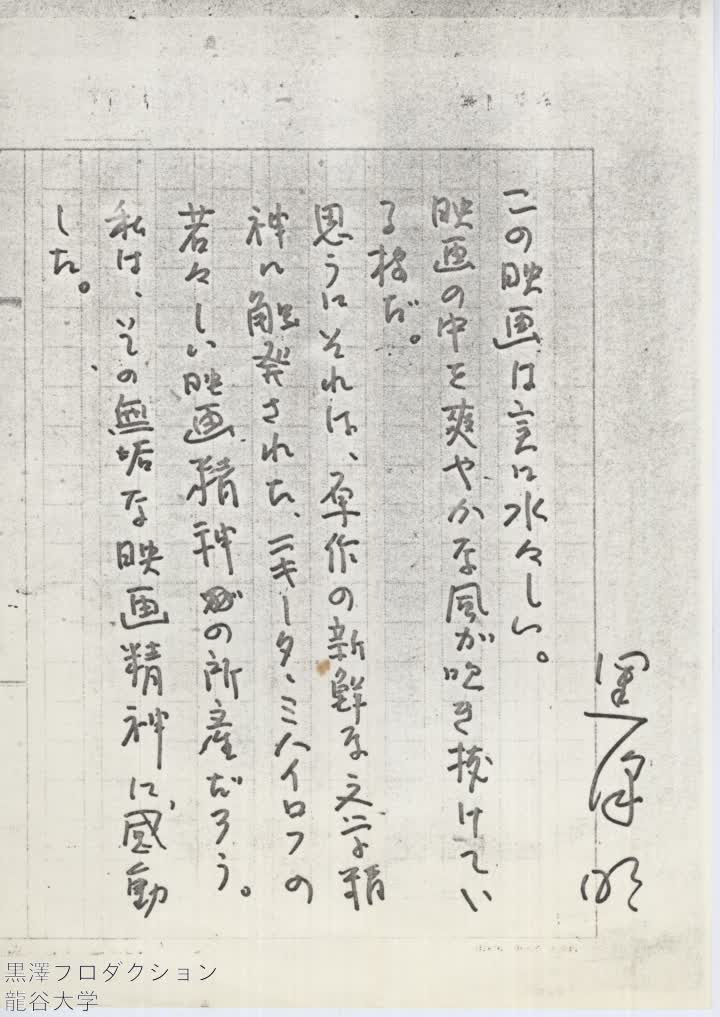 黒澤明
この映画は実に水々しい。
映画の中を爽やかな風が吹き抜けてい
る様だ。
思うにそれは、原作の新鮮な文学精
神に触発された、ニキータ、ミハイロフの
若々しい映画精神の所産だろう。
私は、その無垢な映画精神に、感動
した。
黒澤フロダクション
龍谷大学